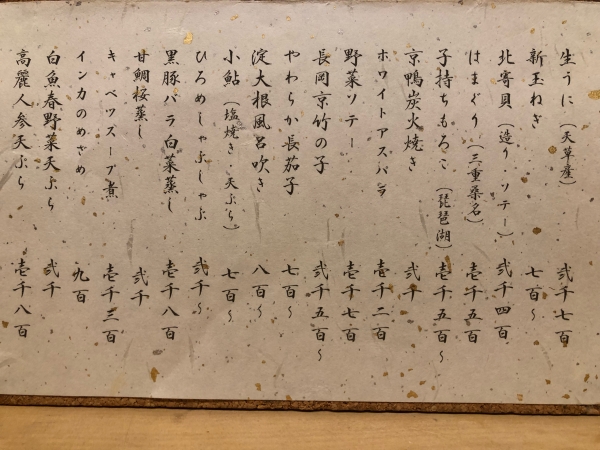 生うに（天草産） 弐千七百
新玉ねぎ 七百〜
北寄貝（造り・ソテー） 弐千四百
はまぐり（三重桑名） 壱千五百
子持ちもろこ（琵琶湖） 壱千五百〜
京鴨炭火焼き 弐千
ホワイトアスパラ 壱千二百
野菜ソテー 壱千七百
長岡京竹の子 弐千五百〜
やわらか長茄子 七百〜
淀大根風呂吹き 八百〜
小鮎（塩焼き・天ぷら） 七百〜
ひろめしゃぶしゃぶ 弐千〜
黒豚バラ白菜蒸し 壱千八百
甘鯛桜蒸し 弐千
キャベツスープ煮 壱千三百
インカのめざめ 九百
白魚春野菜天ぷら 弐千
高麗人参天ぷら 壱千八百